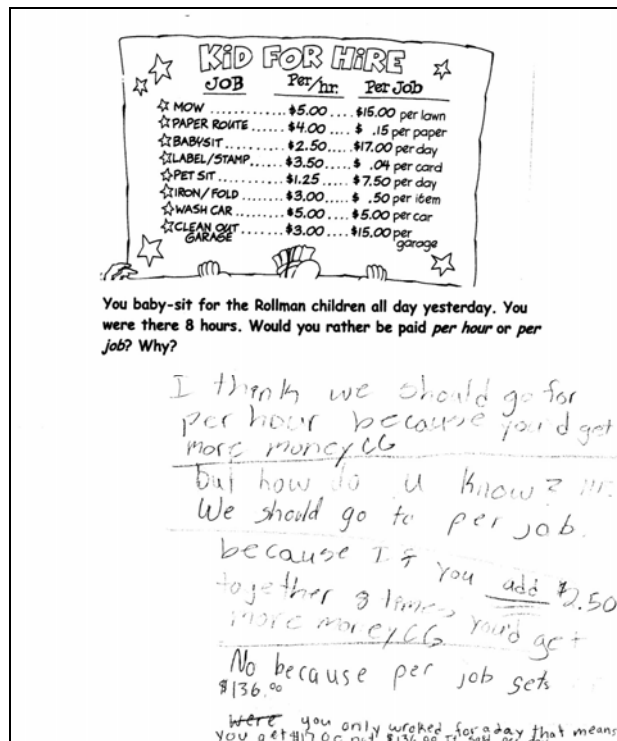 KiD FOR HiRE
JOB Per/hr. Per Job
MOW .............. $5.00 .... $15.00 per lawn
PAPER ROUTE ...... $4.00 .... $ .15 per paper
BABYSIT .......... $2.50 ..... $17.00 per day
LABEL/STAMP ...... $3.50 ..... $ .04 per card
PET SIT .......... $1.25 ..... $7.50 per day
IRON/FOLD ........ $3.00 ..... $ .50 per item
WASH CAR ......... $5.00 .... $5.00 per car
CLEAN OUT ........ $3.00 .... $15.00 per
GARAGE garage
You baby-sit for the Rollman children all day yesterday. You
were there 8 hours. Would you rather be paid per hour or per
job? Why?
I think we should go for
per hour because you'd get
more money CG
but how do u know? Mr.
We should go to per job.
because If you add $2.50
together 8 times you'd get
more money CG
No because per job gets
$136.00
were you only wroked for a day that means
you get $17.00 not $136.00